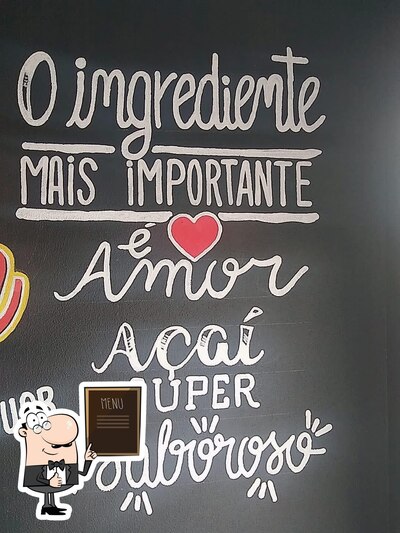 O ingrediente
MAIS IMPORTANTE
é
Amor
Açaí
UPER
saboroso
MENU